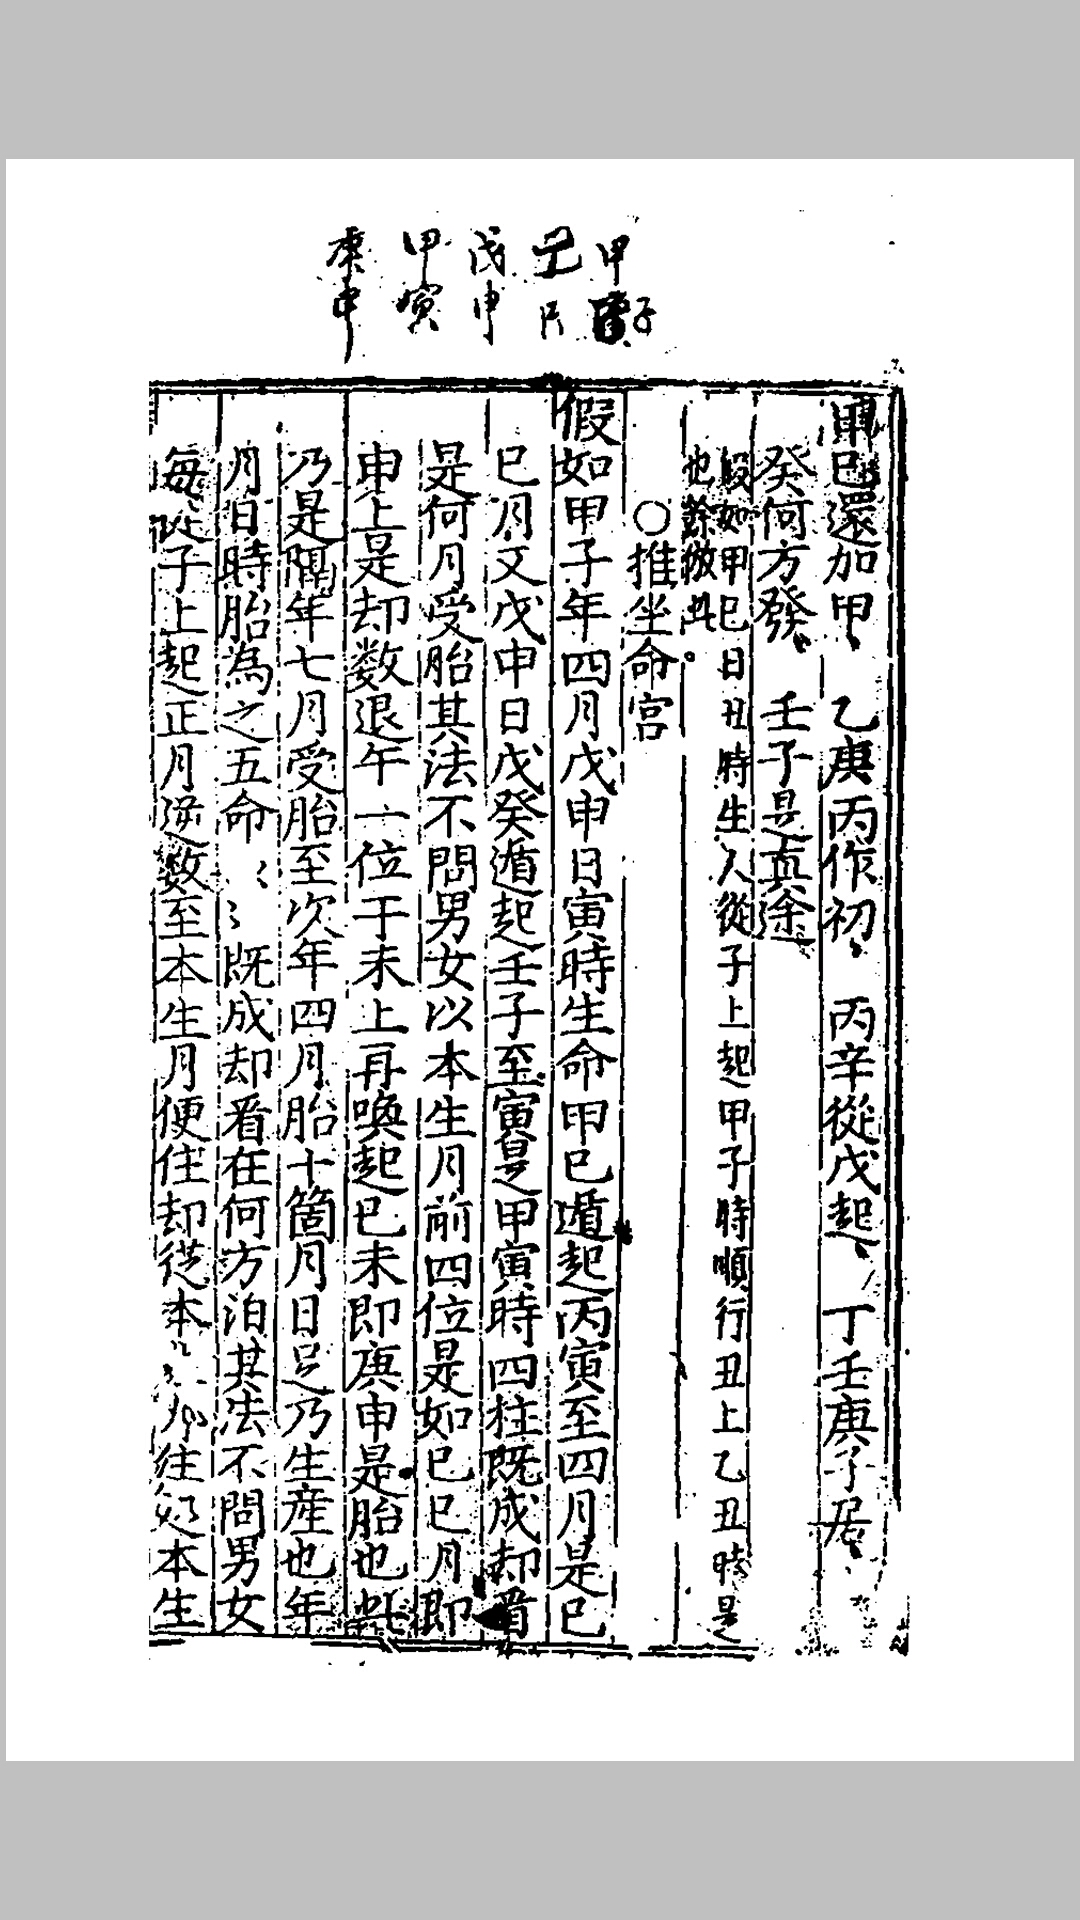 甲子
己巳
戊申
甲寅
庚申
甲己還加甲 乙庚丙作初 丙辛從戊起 丁壬庚子居
癸何方發 壬子是真途
假如甲巳日丑時生人從子上起甲子時順行丑上乙丑時是
也餘倣此
○推坐命宮
假如甲子年四月戊申日寅時生命甲巳遁起丙寅至四月是巳
巳月又戊申日戊癸遁起壬子至寅是甲寅時四柱既成却看
是何月受胎其法不問男女以本生月前四位是如巳巳月即
申上是却数退午一位于未上再喚起巳未即庚申是胎也此
乃是隔年七月受胎至次年四月胎十箇月日足乃生産也年
月日時胎為之五命 既成却看在何方泊其法不問男女
每從子上起正月逆数至本生月便住却從本 住処本生